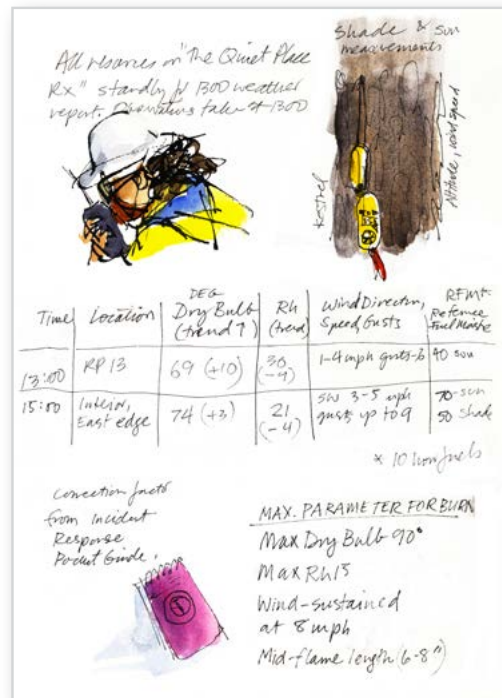 All resources on "The Quiet Place
Rx" standby for 1300 weather
report. Observations taken at 1300
Shade & sun
measurements
Kestrel
Altitude, wind speed
Time
Location
DEG
Dry Bulb
(trend ?)
Rh
(trend)
Wind Direction,
Speed, Gusts
RFMt
Reference
Fuel Moisture
13:00
RP 13
69 (+10)
30
(-9)
1-4 mph gusts-6
40 sun
15:00
Interior,
East edge
74 (+3)
21
(-4)
SW 3-5 mph
gusts up to 9
70-sun
50 shade
* 10 hour fuels
Correction facts
from Incident
Response
Pocket Guide.
MAX. PARAMETER FOR BURN
Max Dry Bulb 90°
Max Rh 15
Wind-sustained
at 8 mph
Mid-flame length (6-8")